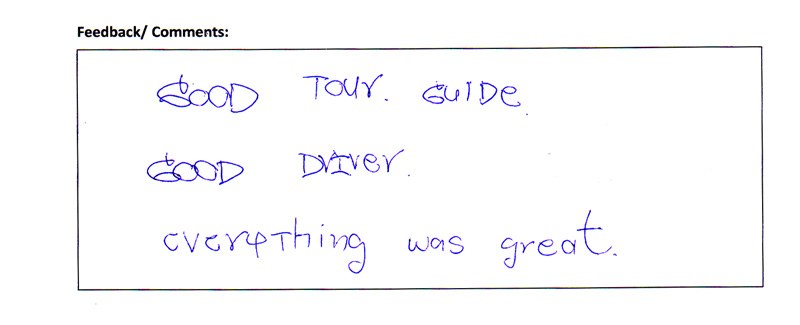 Feedback/ Comments:
GOOD TOUR. GUIDE.
GOOD DRIVER.
everything was great.